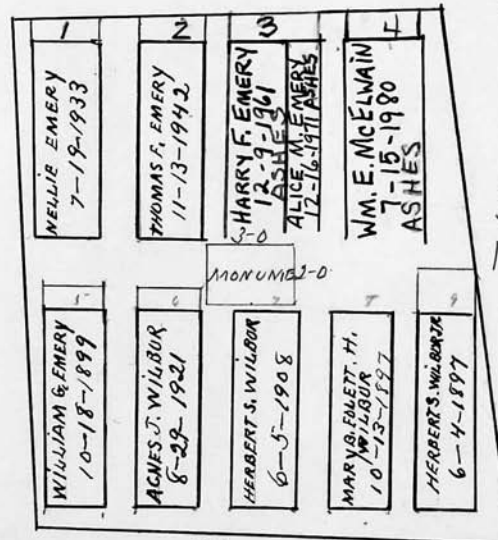 1
2
3
4
NELLIE EMERY
7-19-1933
THOMAS F. EMERY
11-13-1942
HARRY F. EMERY
12-9-1961
ASHES
ALICE M. EMERY
12-16-1971 ASHES
WM. E. MCELWAIN
7-15-1980
ASHES
3-0
MONUME 2-0
5
6
7
8
9
WILLIAM G. EMERY
10-18-1899
AGNES J. WILBUR
8-29-1921
HERBERT S. WILBOR
6-5-1908
MARY B. FOLETT. H.
WILBUR
10-13-1897
HERBERT S. WILBOR JR
6-4-1897